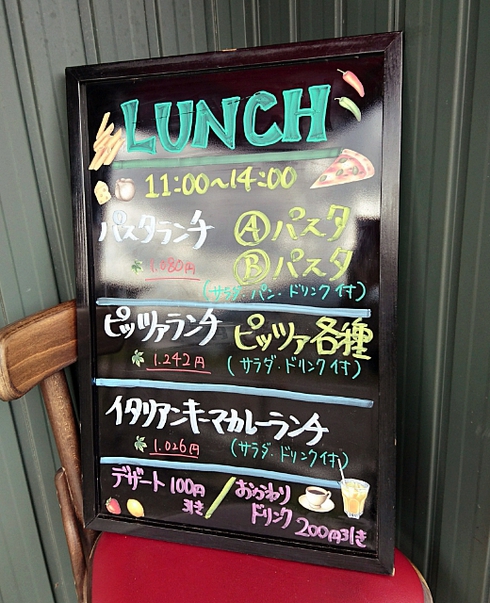 LUNCH
11:00〜14:00
パスタランチ Ⓐパスタ
1.080円 Ⓑパスタ
(サラダ・パン・ドリンク付)
ピッツァランチ ピッツァ各種
1.242円 (サラダ・ドリンク付)
イタリアンキーマカレーランチ
1.026円 (サラダ・ドリンク付)
デザート 100円引き / おかわりドリンク 200円引き